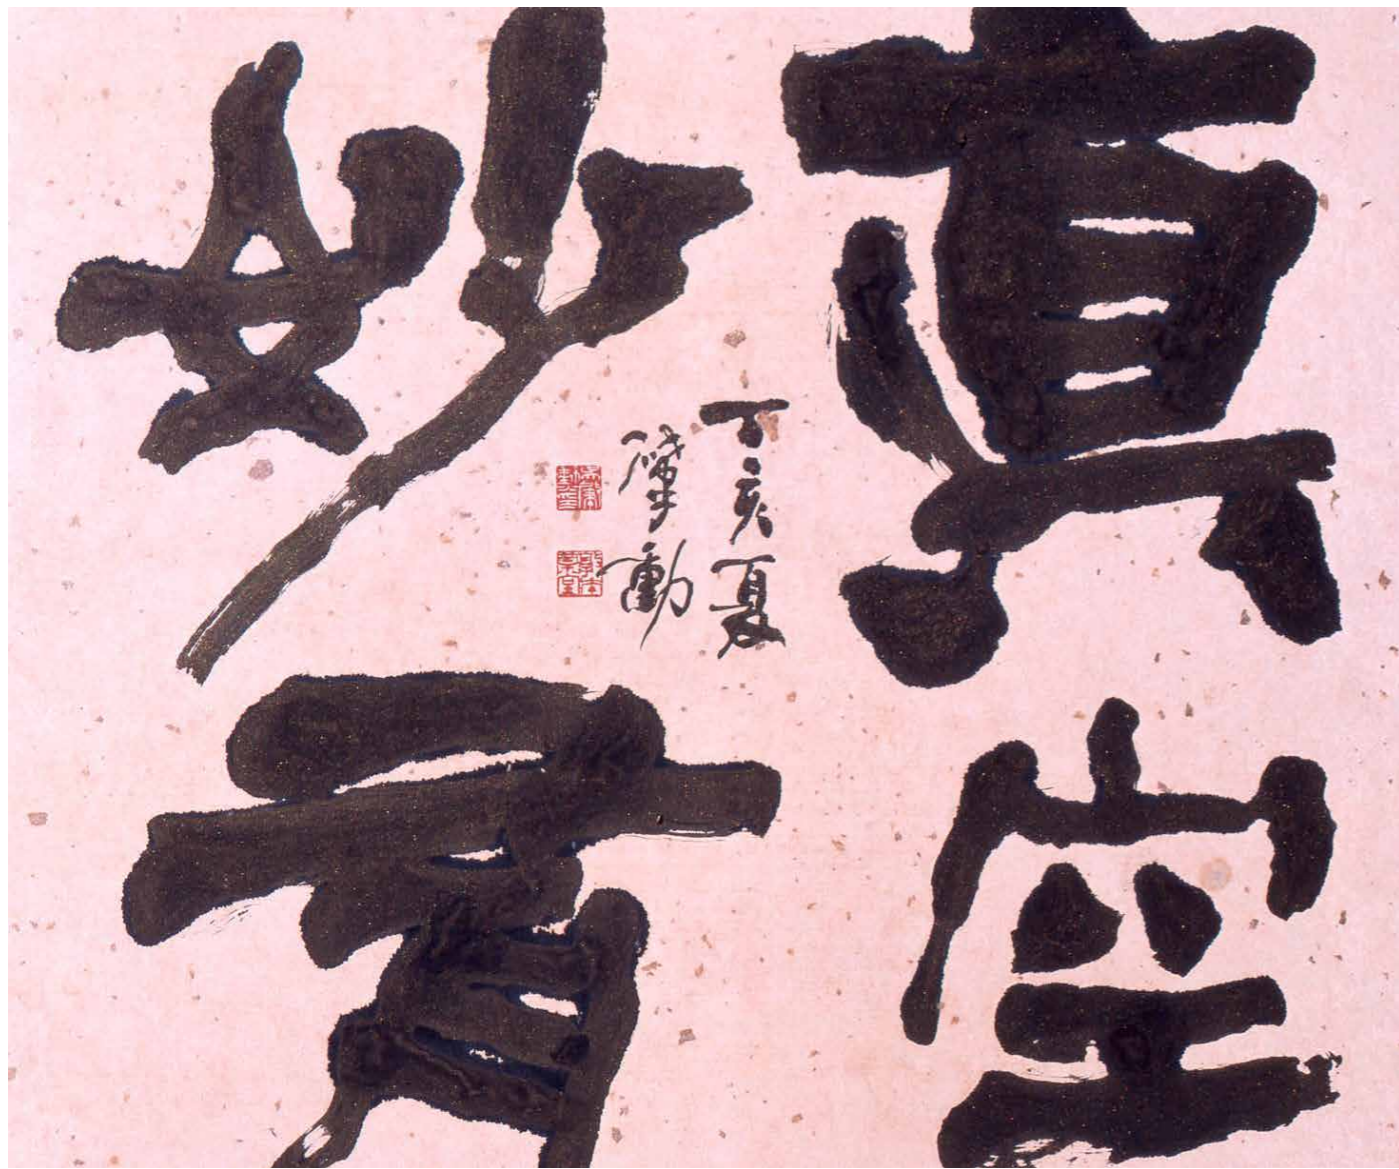 真空
妙有
丁亥夏